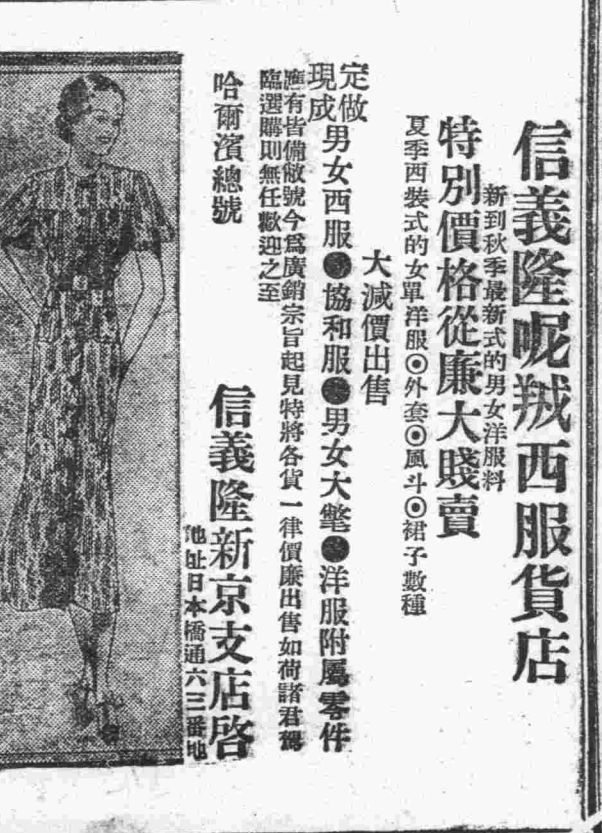 信義隆呢羢西服貨店
新到秋季最新式的男女洋服料
特別價格從廉大賤賣
夏季西裝式的女單洋服◉外套◉風斗◉裙子數種
大減價出售
定做
現成
男女西服●協和服●男女大氅●洋服附屬零件
應有皆備敝號今爲廣銷宗旨起見特將各貨一律價廉出售如荷諸君駕
臨選購則無任歡迎之至
哈爾濱總號
信義隆新京支店啓
地址日本橋通六三番地